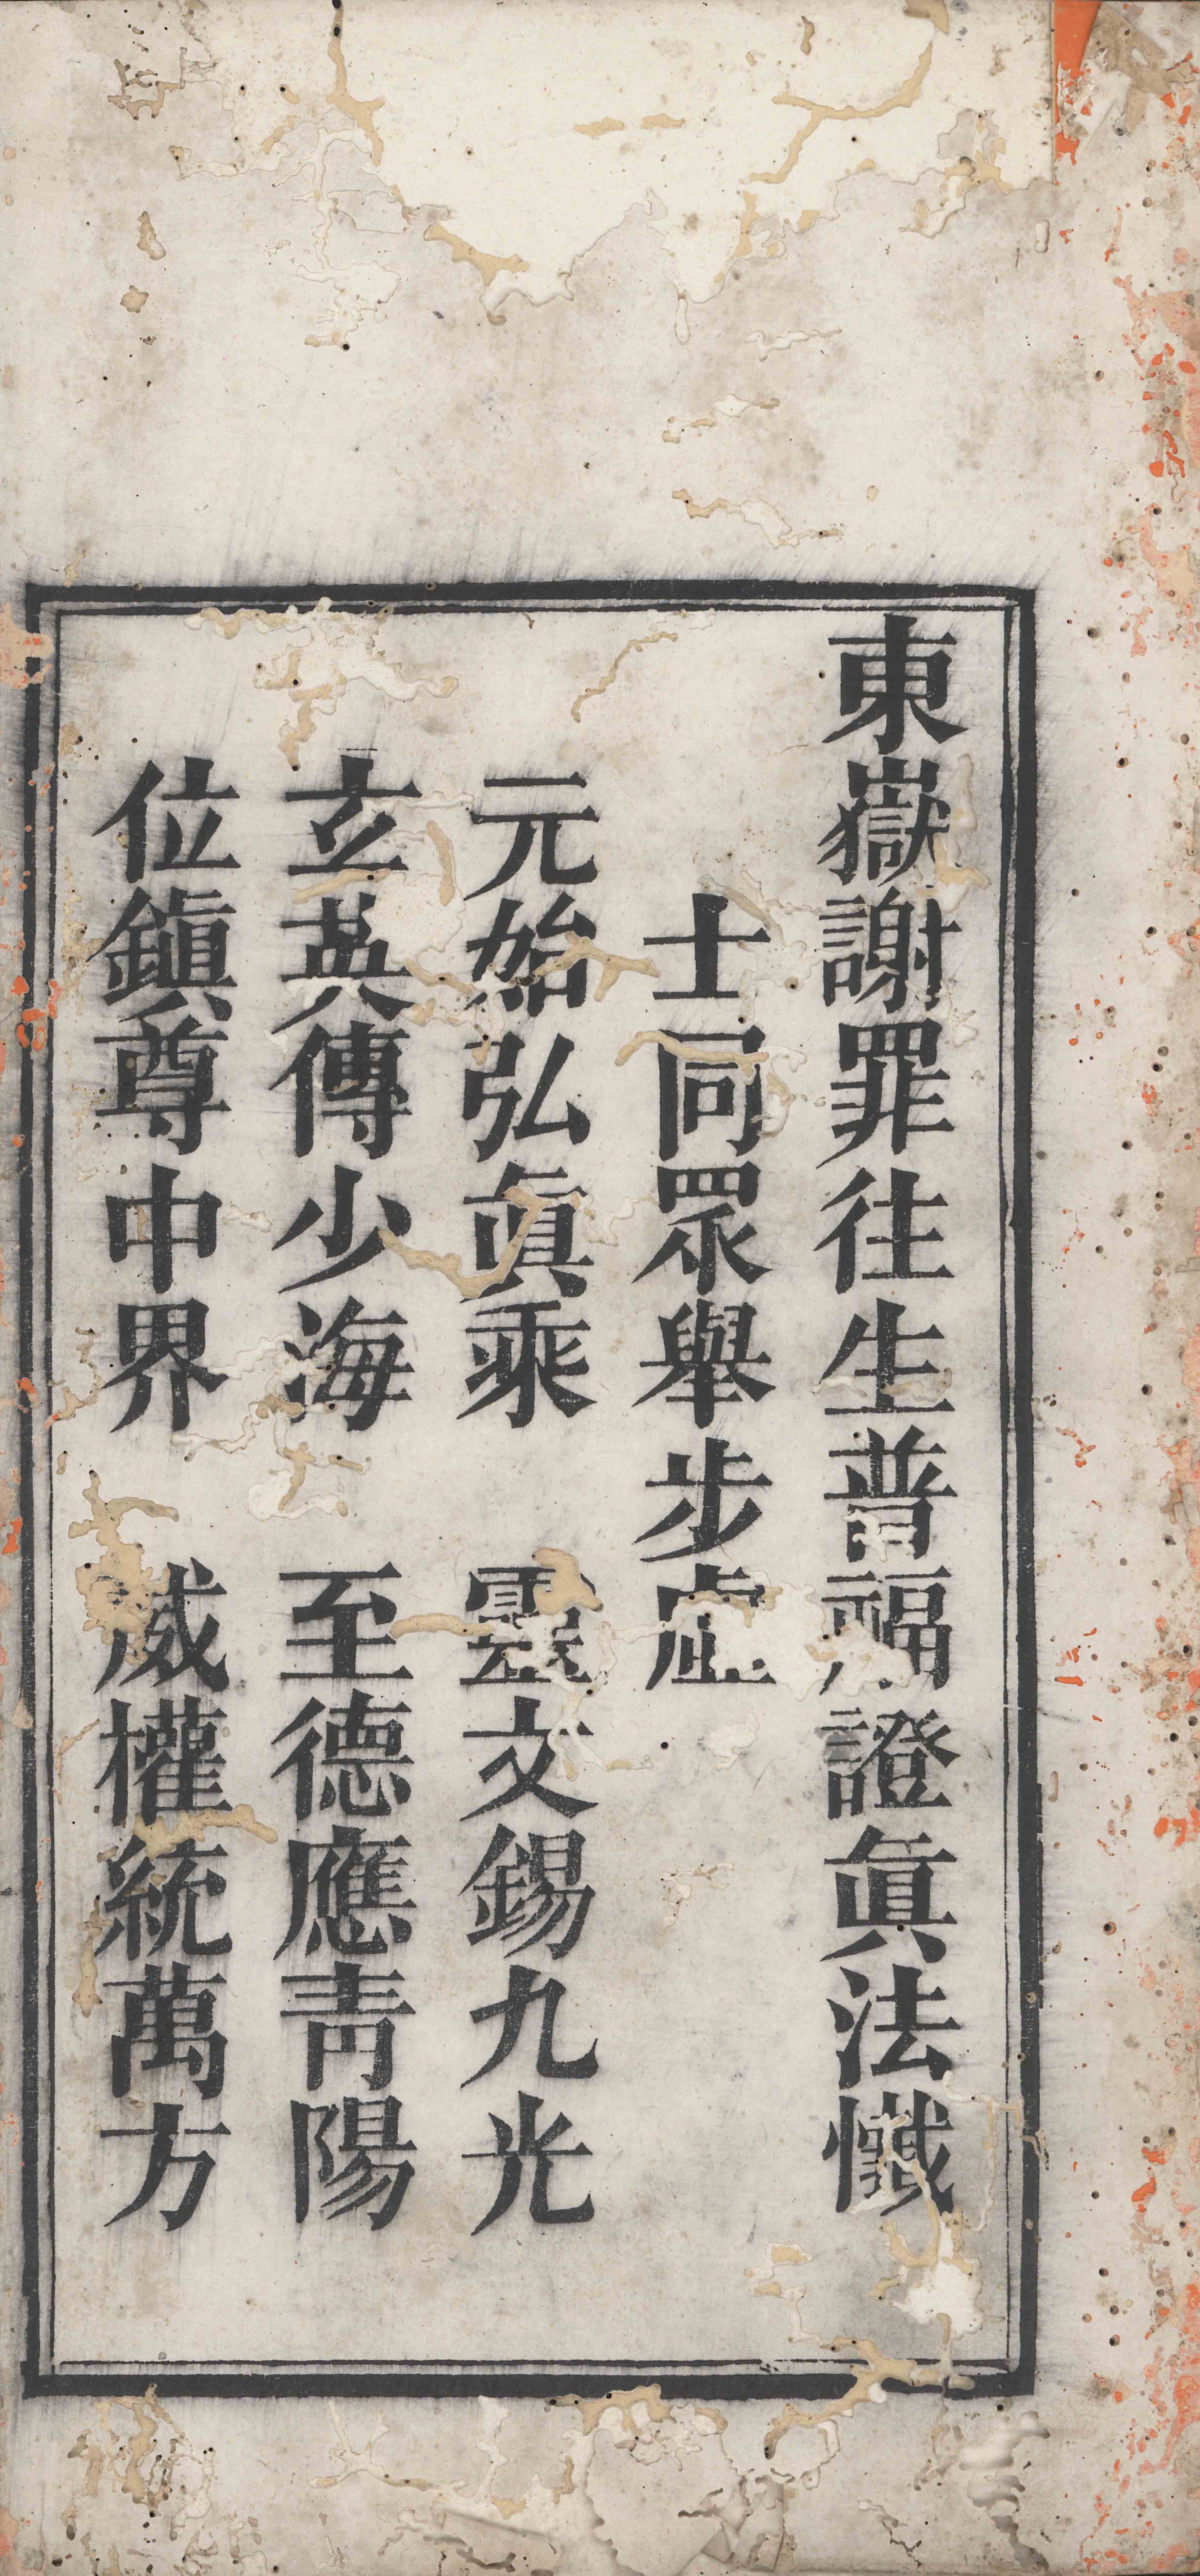 東嶽謝罪往生普福證眞法懺
士同眾舉步虛
元始弘眞乘　靈文錫九光
玄英傳少海　至德應青陽
位鎭尊中界　威權統萬方